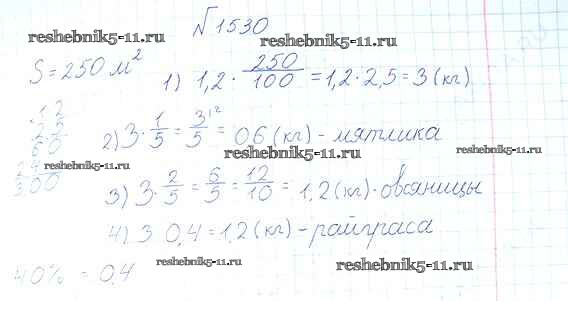 №1530
reshebnik5-11.ru reshebnik5-11.ru
S = 250 м²
1) 1,2 · 250/100 = 1,2 · 2,5 = 3 (кг)
1 2
2 5
6 0
2 4
3,00
2) 3 · 1/5 = 3/5 = 0,6 (кг) - мятлика
reshebnik5-11.ru reshebnik5-11.ru
3) 3 · 2/5 = 6/5 = 12/10 = 1,2 (кг) - овсяницы
4) 3 0,4 = 1,2 (кг) - райграса
reshebnik5-11.ru reshebnik5-11.ru
40% = 0,4